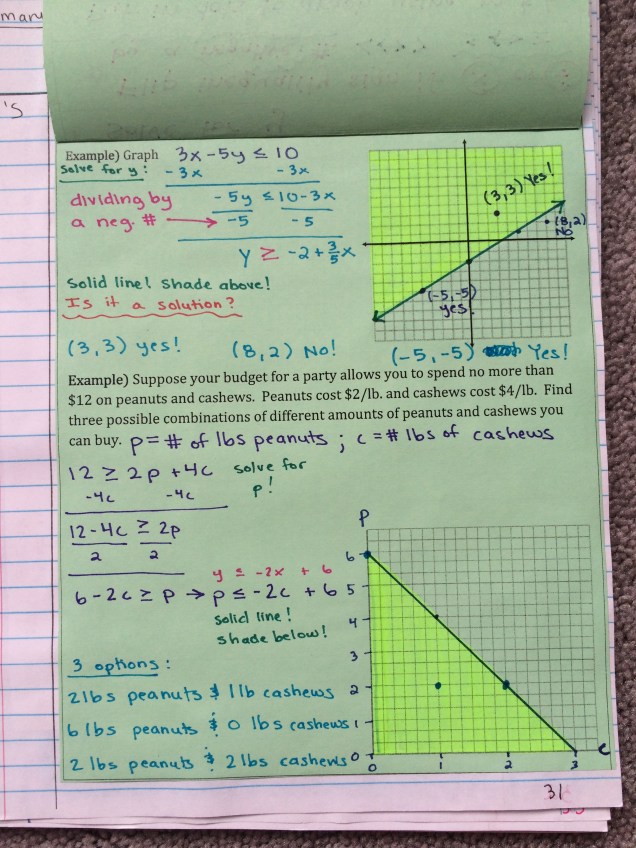 man
's
Example) Graph 3x - 5y ≤ 10
Solve for y: - 3x - 3x
dividing by - 5y ≤ 10-3x
a neg. # → -5 -5
y ≥ -2 + 3/5 x
Solid line! Shade above!
Is it a solution?
(3,3) yes! (8,2) No! (-5,-5) Yes!
(3,3) Yes!
(8,2)
No
(-5,-5)
yes!
Example) Suppose your budget for a party allows you to spend no more than
$12 on peanuts and cashews. Peanuts cost $2/lb. and cashews cost $4/lb. Find
three possible combinations of different amounts of peanuts and cashews you
can buy. p = # of lbs peanuts ; c = # lbs of cashews
12 ≥ 2p + 4c solve for
-4c -4c p!
12-4c ≥ 2p
2 2
y ≤ -2x + 6
6-2c ≥ p → p ≤ -2c + 6
solid line!
shade below!
3 options:
2 lbs peanuts & 1 lb cashews
6 lbs peanuts & 0 lbs cashews
2 lbs peanuts & 2 lbs cashews
P
6
5
4
3
2
1
0
0 1 2 3 c
31